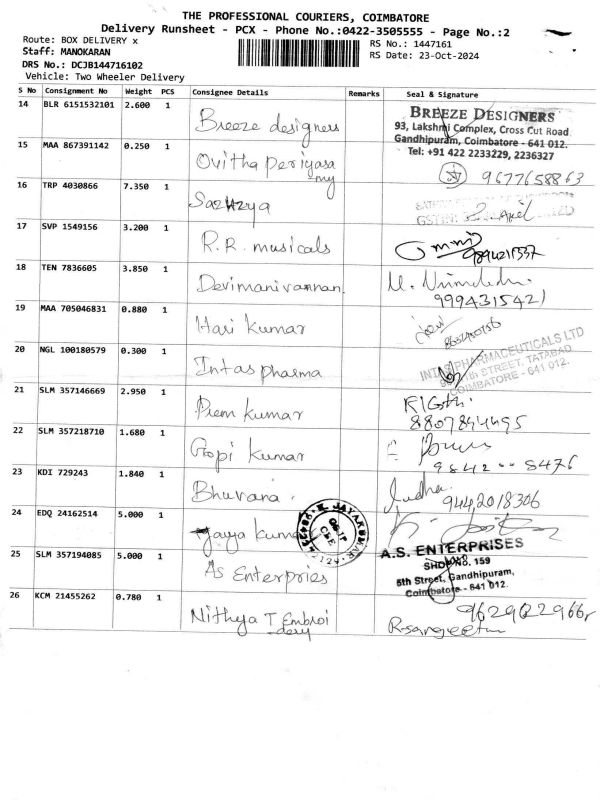 THE PROFESSIONAL COURIERS, COIMBATORE
Delivery Runsheet - PCX - Phone No.:0422-3505555 - Page No.:2
Route: BOX DELIVERY x
RS No.: 1447161
Staff: MANOKARAN
RS Date: 23-Oct-2024
DRS No.: DCJB144716102
Vehicle: Two Wheeler Delivery
S No Consignment No Weight PCS Consignee Details Remarks Seal & Signature
14 BLR 6151532101 2.600 1 Breeze designers
BREEZE DESIGNERS
93, Lakshmi Complex, Cross Cut Road
Gandhipuram, Coimbatore - 641 012.
Tel: +91 422 2233229, 2236327
15 MAA 867391142 0.250 1 Ovitha periyasa
my
9677658863
16 TRP 4030866 7.350 1
17 SVP 1549156 3.200 1 R.R. musicals
9894211337
18 TEN 7836605 3.850 1 Devimanivannan.
9994315421
19 MAA 705046831 0.880 1 Hari kumar
20 NGL 100180579 0.300 1 Intas pharma
PHARMACEUTICALS LTD
STREET, TATABAD
COIMBATORE - 641 012.
21 SLM 357146669 2.950 1 Prem kumar
8807844495
22 SLM 357218710 1.680 1 Gopi kumar
23 KDI 729243 1.840 1 Bhuvana.
Indha.
9442018306
24 EDQ 24162514 5.000 1 Jaya kumar
K. JAYAKUMAR
25 SLM 357194085 5.000 1 As Enterpries
A.S. ENTERPRISES
SHOP NO. 159
5th Street, Gandhipuram,
Coimbatore - 641 012.
26 KCM 21455262 0.780 1 Nithya T Embroi
dery
9629022966,
R.sangeetha